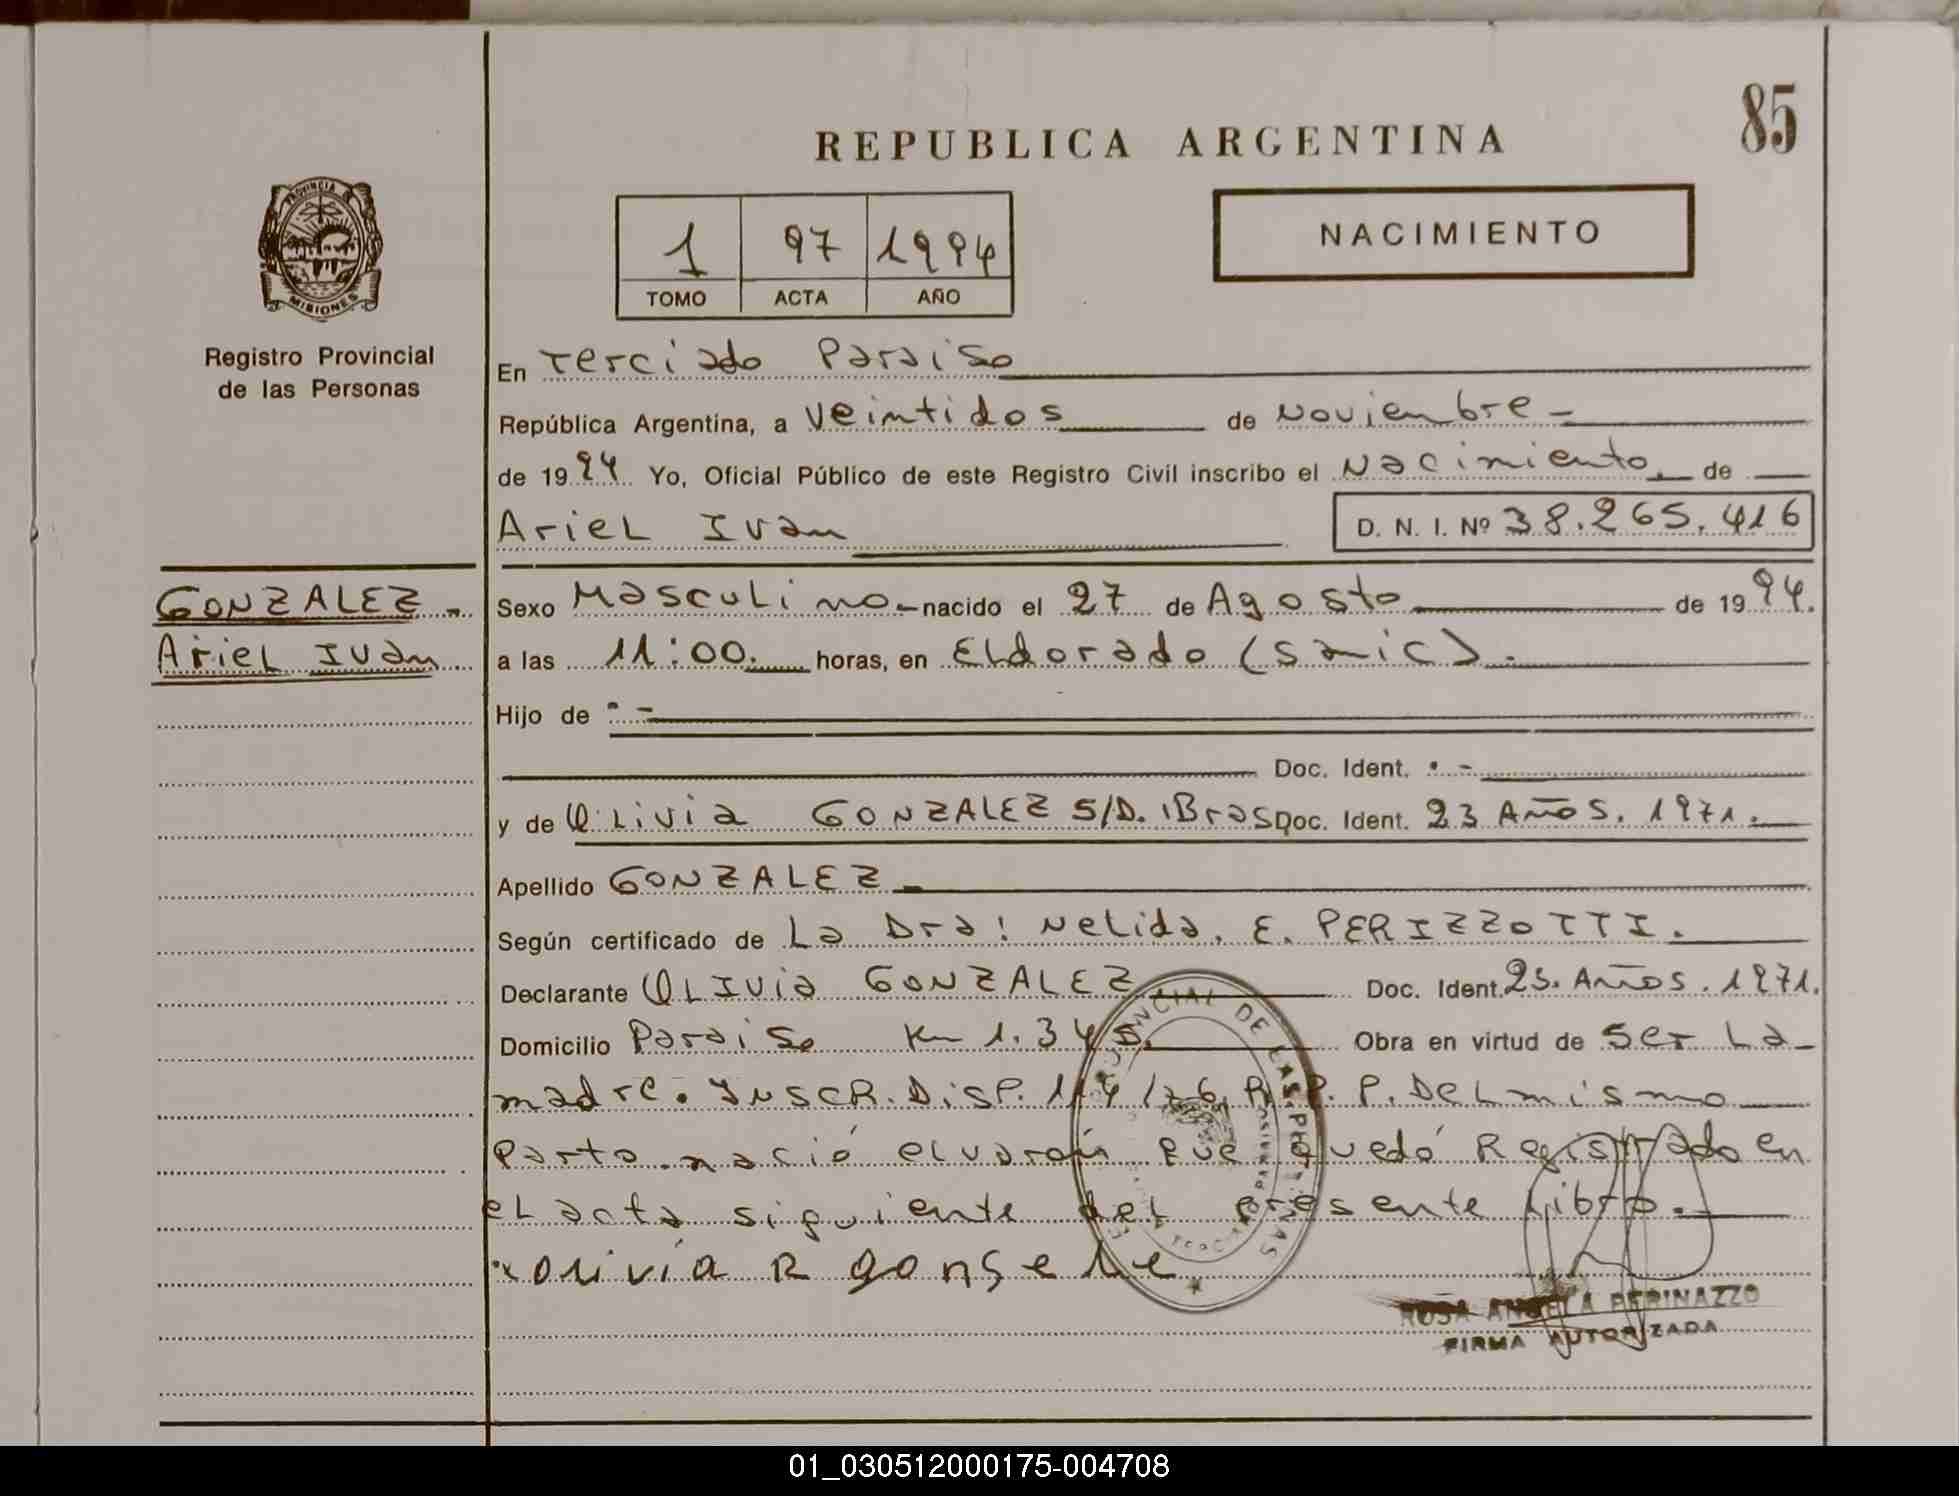 85
REPUBLICA ARGENTINA
PROVINCIA DE
MISIONES
Registro Provincial
de las Personas
1 97 1994
TOMO ACTA AÑO
NACIMIENTO
En Terciado Paraiso
República Argentina, a veintidos de Noviembre
de 1994 Yo, Oficial Público de este Registro Civil inscribo el Nacimiento de
Ariel Ivan D. N. I. Nº 38.265.416
GONZALEZ
Ariel Ivan
Sexo Masculino nacido el 27 de Agosto de 1994.
a las 11:00 horas, en Eldorado (Samic).
Hijo de
Doc. Ident.
y de Olivia GONZALEZ S/D. Bras Doc. Ident. 23 Años. 1971.
Apellido GONZALEZ
Según certificado de La Dra: Nelida. E. PERIZZOTTI.
Declarante OLIVia GONZALEZ Doc. Ident. 23. Años. 1971.
Domicilio Paraiso Km 1.345. Obra en virtud de ser La
madre. INSCR. DisP. 114/76 R. P. P. Del mismo
Parto nació el varón que quedó Registrado en
el acta siguiente del presente Libro.
x olivia R gonsele
ROSA ANGELA PERINAZZO
FIRMA AUTORIZADA
01_030512000175-004708